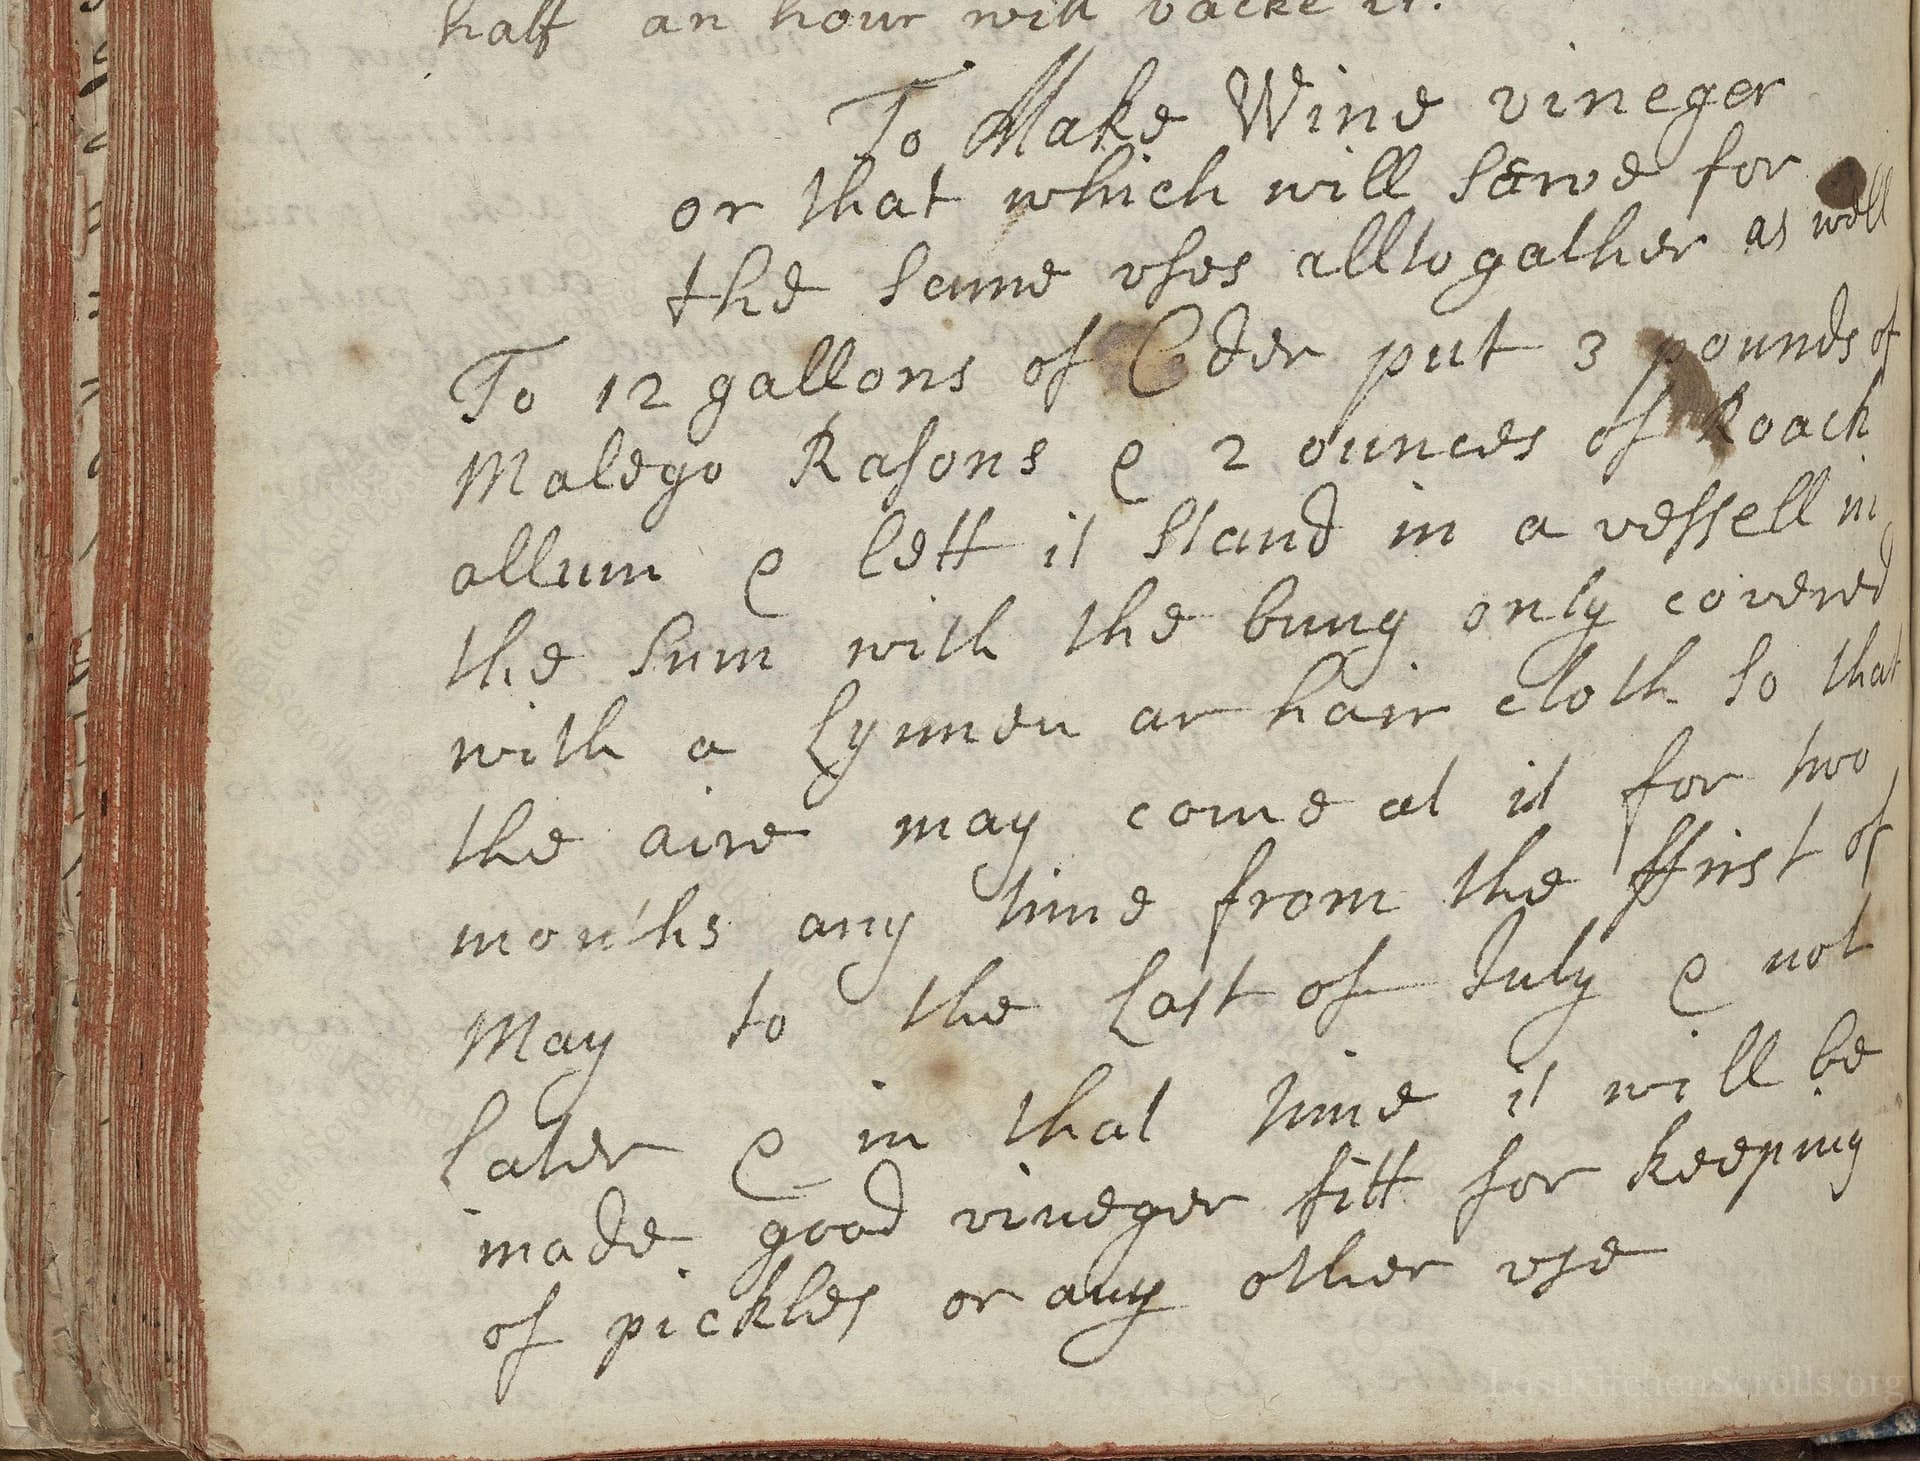 half an hour will backe it.
To Make Wine vineger
or that which will Serve for
the Same vses alltogather as well
To 12 gallons of Cder put 3 pounds of
Malego Rasons & 2 ounces of Roach
allum & lett it Stand in a vessell in
the Sum with the bung only covered
with a Lynnen ar hair cloth So that
the aire may come at it for two
months any time from the ffirst of
May to the Last of July & not
Later & in that time it will be
made good vineger fitt for keeping
of pickles or any other vse
LostKitchenScrolls.org